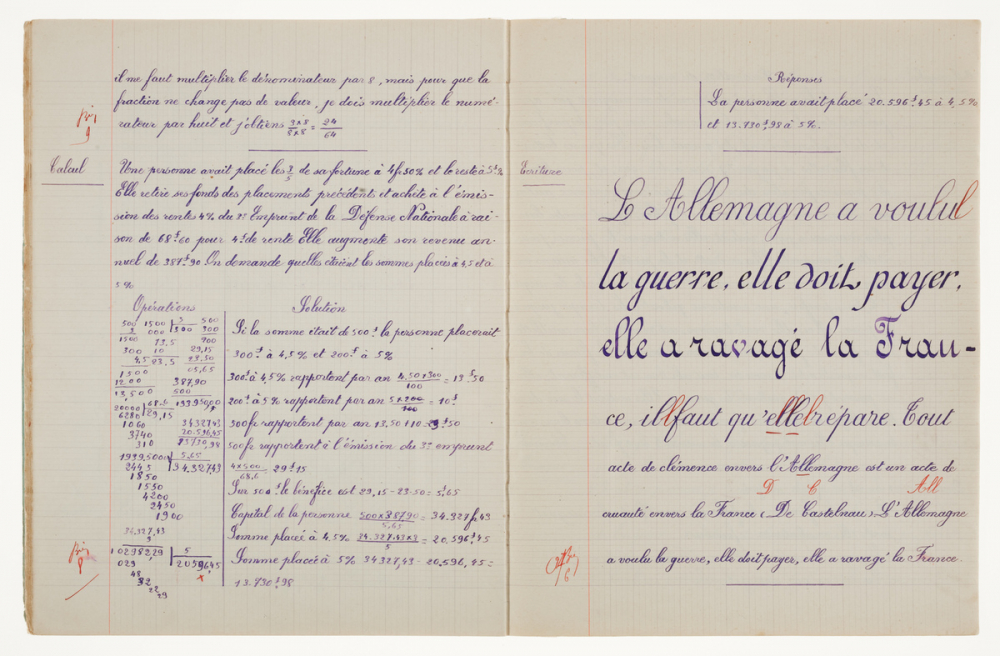 il me faut multiplier le dénominateur par 8, mais pour que la
fraction ne change pas de valeur, je dois multiplier le numé-
rateur par huit et j'obtiens 3×8/8×8 = 24/64
9
Calcul
Une personne avait placé les 3/5 de sa fortune à 4f50% et le reste à 5f%
Elle retire ses fonds des placements précédents et achète à l'émis-
sion des rentes 4% du 3e Emprunt de la Défense Nationale à rai-
son de 68f60 pour 4f de rente Elle augmente son revenu an-
nuel de 387f90 On demande quelles étaient les sommes placées à 4,5 et à
5%
Opérations
Solution
Si la somme était de 500f la personne placerait
300f à 4,5% et 200f à 5%
300f à 4,5% rapportent par an 4,50×300/100 = 13f50
200f à 5% rapportent par an 5×200/100 = 10f
500fr rapportent par an 13,50+10 = 23f50
500fr rapportent à l'émission du 3e emprunt
4×500/68,6 29f15
Sur 500f le bénéfice est 29,15-23,50 = 5f65
Capital de la personne 500×387,90/5,65 = 34.327f,43
Somme placée à 4.5% 34.327,43×3/5 = 20,596f45
Somme placée à 5% 34327,43 - 20.596,45 =
13.730f98
500 1500 5 500
3 000 300 300
1500 13,5 200
300 10 29,15
4,5 23,5 23,50
1500 05,65
1200 387,90
13,500 500
20000 68,6 193950,00
6280 29,15
1060 34327,43
3740 20.596,45
310 13730,98
1939,5000 5,65
244,5 34.327,43
1850
1550
4200
2450
1900
34,327,43
3
102982,29 5
029 20596,45
48
32
22
29
8
Réponses
La personne avait placé 20.596f45 à 4,5%
et 13.730f98 à 5%.
Ecriture
L'Allemagne a voulu l
la guerre, elle doit payer,
elle a ravagé la Fran-
ce, il faut qu'elle répare. Tout
acte de clémence envers l'Allemagne est un acte de
D C All
cruauté envers la France (De Castelnau) L'Allemagne
a voulu la guerre, elle doit payer, elle a ravagé la France.
6